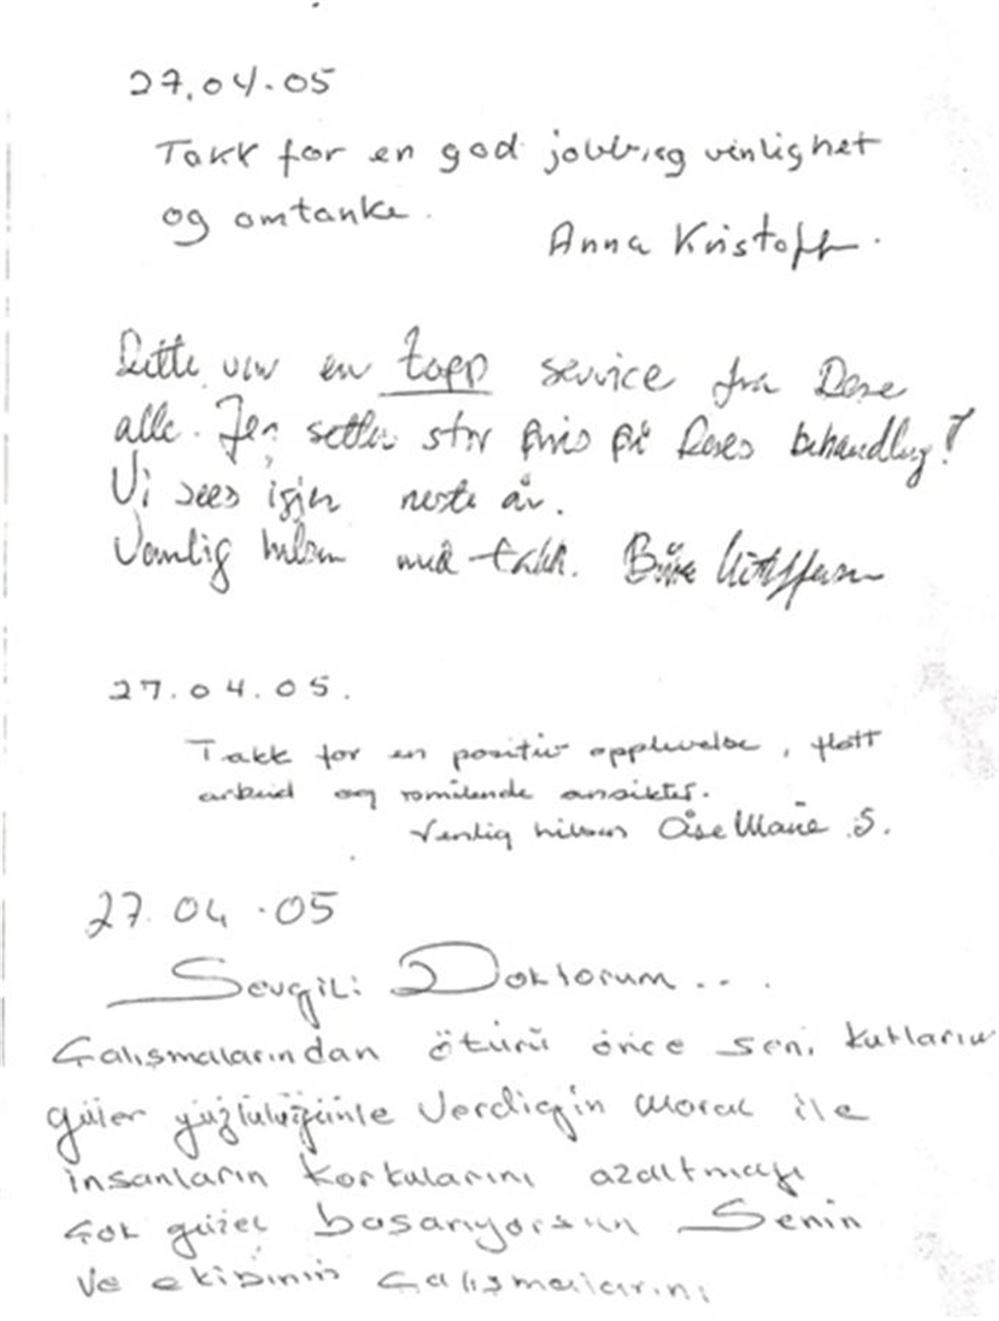 27.04.05
Takk for en god jobb, og vinlighet
og omtanke.
Anna Kristoff.
Dette var en topp service fra Dere
alle. Jeg setter stor pris på Deres behandling!
Vi sees igjen neste år.
Vennlig hilsen med takk.
27.04.05.
Takk for en positiv opplevelse, flott
arbeid og smilende ansikter.
Venlig hilsen Åse Marie S.
27.04.05
Sevgili Doktorum...
Çalışmalarından ötürü önce seni kutlarım
güler yüzlülüğünle verdiğin moral ile
insanların korkularını azaltmayı
çok güzel başarıyorsun Senin
ve ekibinin çalışmalarını